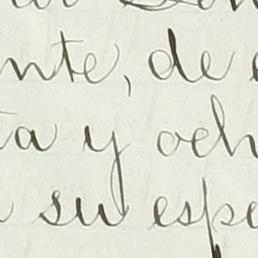 nte, de
ta y och
su espe